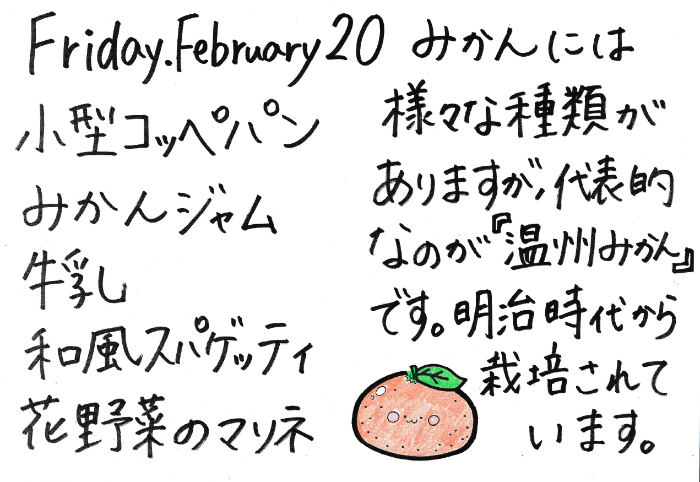 Friday.February 20
小型コッペパン
みかんジャム
牛乳
和風スパゲッティ
花野菜のマリネ
みかんには
様々な種類が
ありますが、代表的
なのが『温州みかん』
です。明治時代から
栽培されて
います。